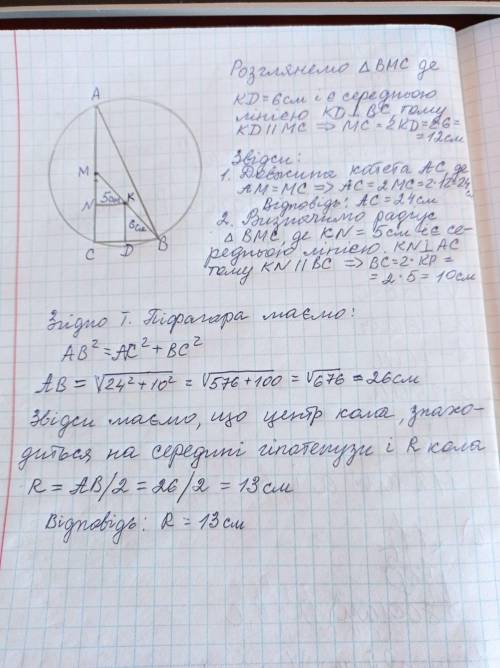 Розглянемо △ BMC де
KD = 6см і є середньою
лінією KD ⊥ BC, тому
KD || MC ⇒ MC = 2KD = 2·6 =
= 12см
Звідси:
1. Довжина катета AC, де
AM = MC ⇒ AC = 2MC = 2·12 = 24
Відповідь: AC = 24см
2. Визначимо радіус
△ BMC, де KN = 5см і є се-
редньою лінією. KN ⊥ AC
тому KN || BC ⇒ BC = 2·KP =
= 2·5 = 10см
A
M
N
5см
K
6см
C
D
B
Згідно Т. Піфагора маємо:
AB² = AC² + BC²
AB = √24² + 10² = √576 + 100 = √676 = 26см
Звідси маємо, що центр кола, знахо-
диться на середині гіпотенузи і R кола
R = AB/2 = 26/2 = 13см
Відповідь: R = 13см